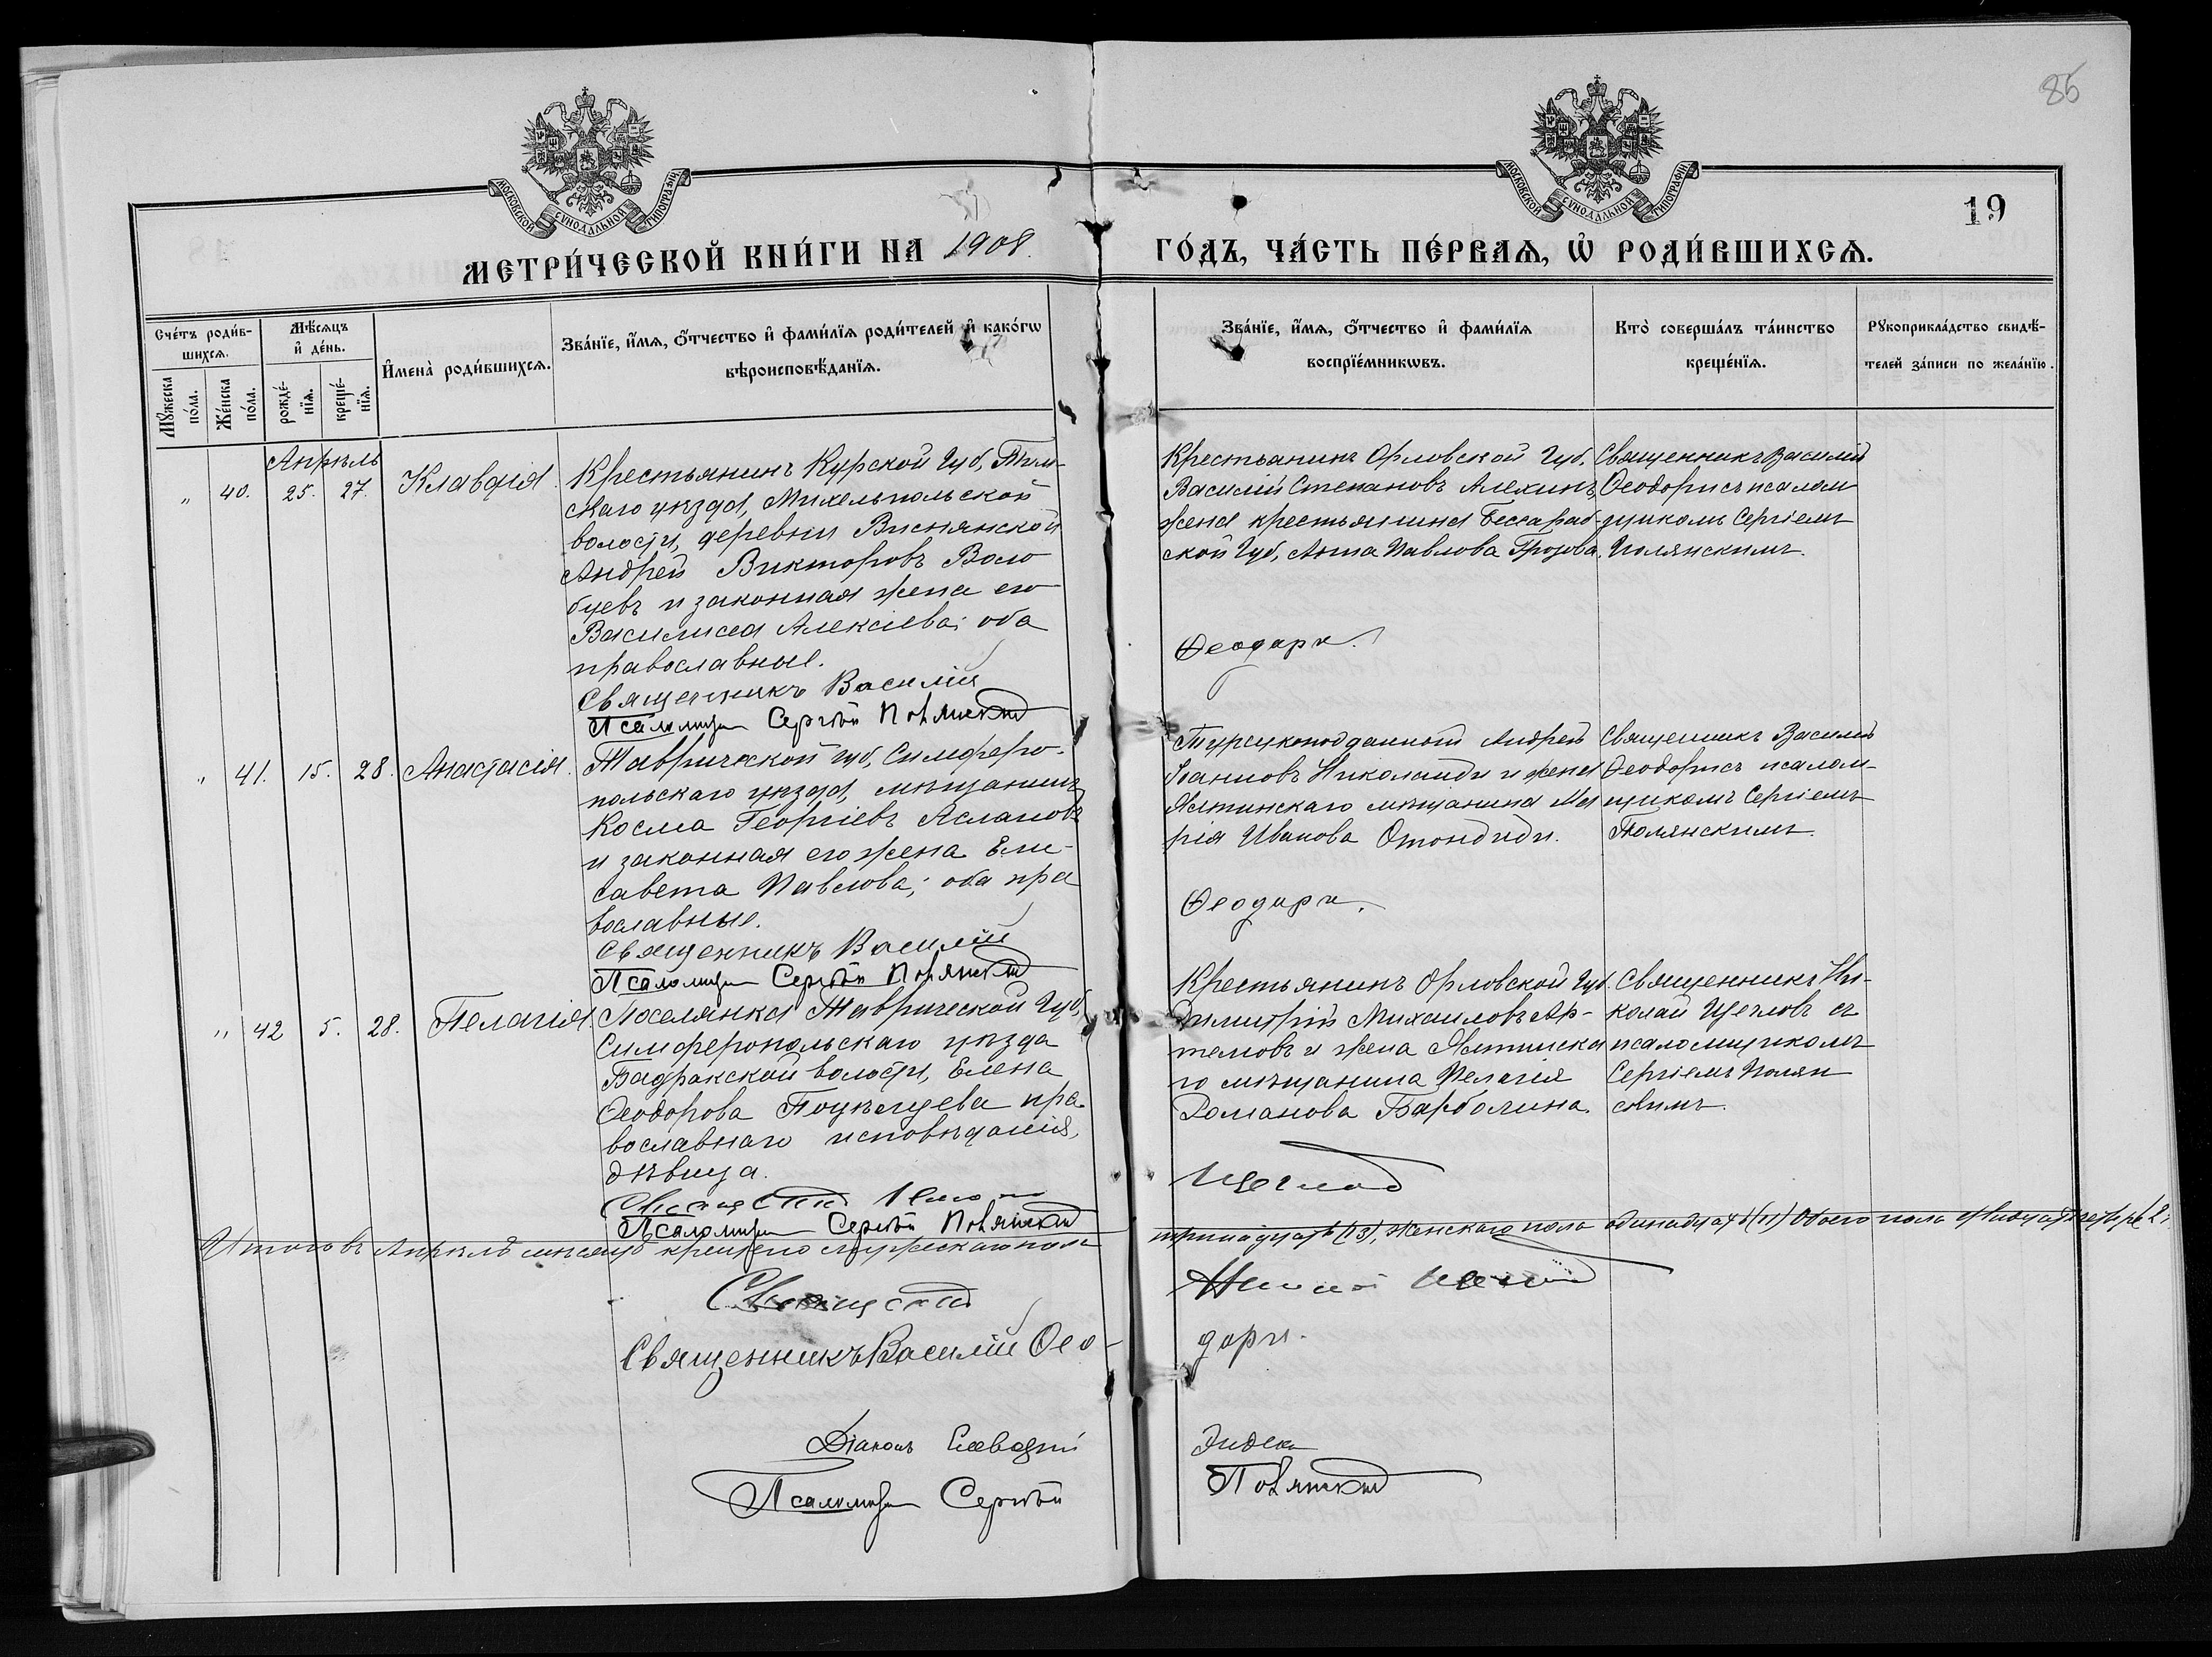 86
МОСКОВСКОЙ СУНОДАЛЬНОЙ ТИПОГРАФІИ
МОСКОВСКОЙ СУНОДАЛЬНОЙ ТИПОГРАФІИ
19
МЕТРИ́ЧЕСКОЙ КНИ́ГИ НА 1908.
ГО́ДЪ, ЧА́СТЬ ПЕ́РВАѦ, Ѡ҆ РОДИ́ВШИХСѦ.
Сче́тъ роди́в-
шихсѧ.
Мꙋ́жеска
по́ла.
Же́нска
по́ла.
Мѣ́сѧцъ
и҆ де́нь.
рожде́-
нїѧ.
креще́-
нїѧ.
И҆мена̀ роди́вшихсѧ.
Зва́нїе, и҆́мѧ, ѻ҆́тчество и҆ фами́лїѧ роди́телей и҆ како́гѡ
вѣроисповѣ́данїѧ.
Зва́нїе, и҆́мѧ, ѻ҆́тчество и҆ фами́лїѧ
воспрїе́мникѡвъ.
Кто̀ соверша́лъ та́инство
креще́нїѧ.
Рꙋкоприкла́дство свидѣ́-
телей за́писи по жела́нїю.
Апрѣль
" 40. 25. 27. Клавдія.
Крестьянинъ Курской Губ, Тим-
скаго уѣзда, Михельпольской
волости, деревни Виснянской
Андрей Викторовъ Воло
буевъ и законная жена его
Василиса Алексіева; оба
православные.
Священникъ Василій
Псаломщ Сергѣй Полянскій
Крестьянинъ Орловской Губ.
Василій Степановъ Алехинъ,
жена крестьянина Бессараб-
ской Губ, Анна Павлова Грозова.
Ѳеодори.
Священникъ Василій
Ѳеодори съ псалом
щикомъ Сергіемъ
Полянскимъ.
" 41. 15. 28. Анастасія.
Таврической губ, Симферо-
польскаго уѣзда, мѣщанинъ
Косма Георгіевъ Аслановъ
и законная его жена Ели-
савета Павлова; оба пра
вославные.
Священникъ Василій
Псаломщ Сергѣй Полянскій
Турецкоподданный Андрей
Іоанновъ Николаиди и жена
Ялтинскаго мѣщанина Ма
рія Иванова Отондиди.
Ѳеодори.
Священникъ Василій
Ѳеодори съ псалом-
щикомъ Сергіемъ
Полянскимъ.
" 42 5. 28. Пелагія.
Поселянка Таврической Губ,
Симферопольскаго уѣзда
Бадракской волости, Елена
Ѳеодорова Поцѣлуева пра
вославнаго исповѣданія,
дѣвица.
Священникъ Николай
Псаломщ Сергѣй Полянскій
Крестьянинъ Орловской Губ.
Димитрій Михаиловъ Ар-
темовъ и жена Ялтинска
го мѣщанина Пелагія
Романова Барболина.
Щегловъ
Священникъ Ни-
колай Щегловъ съ
псаломщикомъ
Сергіемъ Полян
скимъ.
Итого въ Апрѣлѣ мѣсяцѣ крещено мужескаго пола
тринадцать (13), Женскаго пола одинадцать (11) Обоего пола двадцать четыре 2
Священникъ
Николай Щегловъ
Священникъ Василій Ѳео-
дори.
Діаконъ
Псаломщ Сергѣй
Полянскій